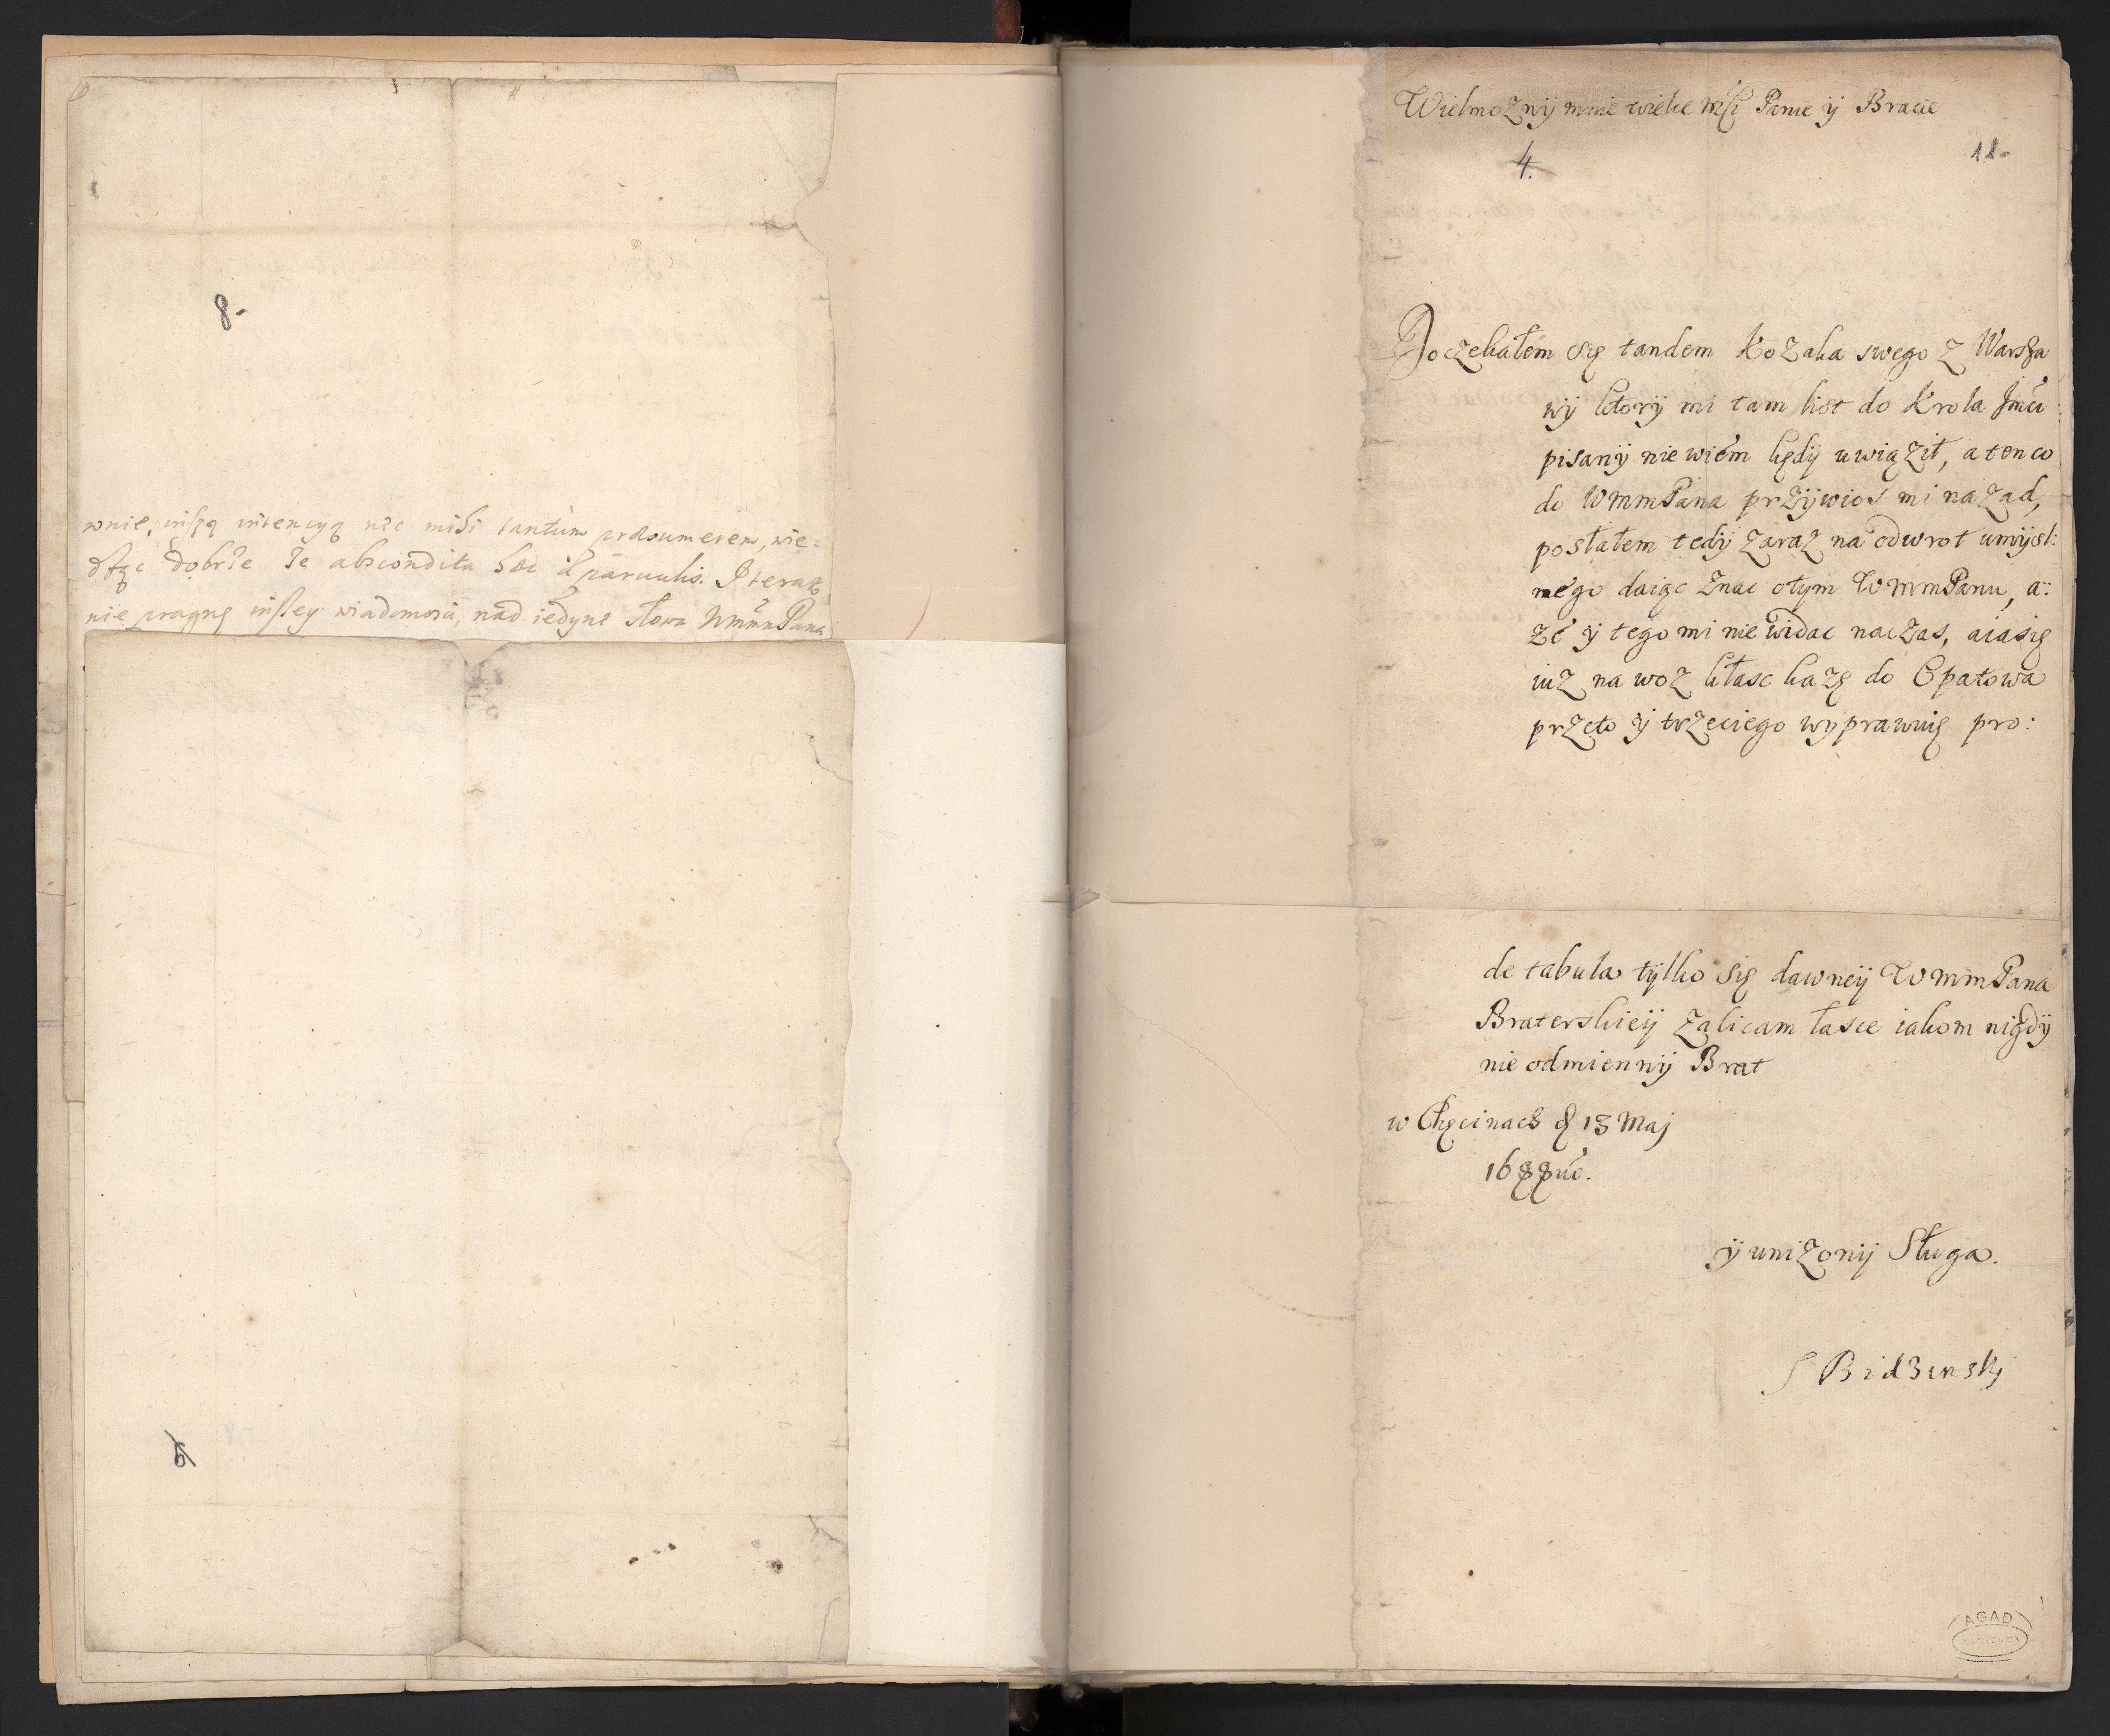 8.
wnie, inszą intencyą nec mihi tantum praesumerem, wie=
dząc dobrze że abscondita haec a paruulis. I teraz
nie pragnę inszey wiadomości, nad iedyne słowa WmmPana
6
Wielmozny mnie wielce Msci Panie ÿ Bracie
4.
11.
Doczekałem się tandem Kozaka swego z Warsza
wÿ ktorÿ mi tam list do Krola Jmci
pisanÿ nie wiem kędÿ uwięził, a ten co
do WmmPana przÿwios mi nazad,
posłałem tedÿ zaraz na odwrot umÿsl:
nego daiąc znac otym WmmPanu, a:
ze ÿ tego mi nie widac naczas, aiasię
iuz na woz kłasc kazę do Opatowa
przeto ÿ trzeciego wyprawuię pro:
de tabula tÿlko się dawneÿ WmmPana
Braterskieÿ zalicam łasce iakom nigdÿ
nie odmiennÿ Brat
w Chęcinach d 13 Maj
1688
ÿ unizonÿ Sługa.
S Bidzinskj
AGAD